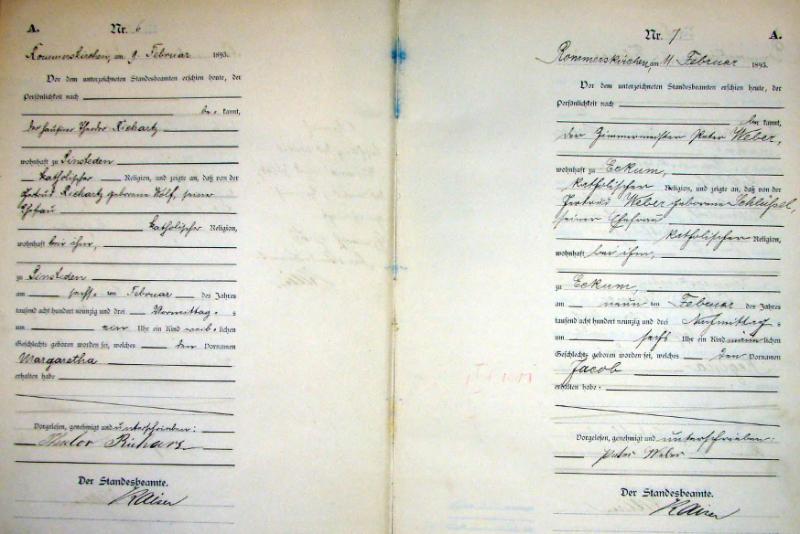 A. Nr. 6
Rommerskirchen, am 9. Februar 1893.
Vor dem unterzeichneten Standesbeamten erschien heute, der
Persönlichkeit nach
be- kannt,
der Theodor Richartz
wohnhaft zu Sinsteden
katholischer Religion, und zeigte an, daß von der
Gertrud Richartz geborene Wolf, seine
Ehefrau
katholischer Religion,
wohnhaft bei ihm,
zu Sinsteden
am sechs- ten Februar des Jahres
tausend acht hundert neunzig und drei Vormittag- s
um Uhr ein Kind weib- lichen
Geschlechts geboren worden sei, welches den Vornamen
Margaretha
erhalten habe
Vorgelesen, genehmigt und unterschrieben:
Richarz
Der Standesbeamte.
Kaiser
Nr. 7 A.
Rommerskirchen, am 11 Februar 1893.
Vor dem unterzeichneten Standesbeamten erschien heute, der
Persönlichkeit nach
be kannt,
der Zimmermeister Peter Weber,
wohnhaft zu Eckum,
katholischen Religion, und zeigte an, daß von der
Gertrud Weber geborene Schlüssel,
seiner Ehefrau
katholischen Religion,
wohnhaft bei ihm,
zu Eckum,
am neun ten Februar des Jahres
tausend acht hundert neunzig und drei Nachmittag
um sechs Uhr ein Kind männ lichen
Geschlechts geboren worden sei, welches den Vornamen
Jacob
erhalten habe
Vorgelesen, genehmigt und unterschrieben:
Peter Weber
Der Standesbeamte.
Kaiser